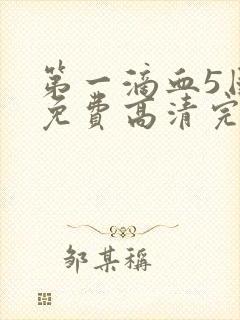 第一滴血5
免费高清完
邹某稱